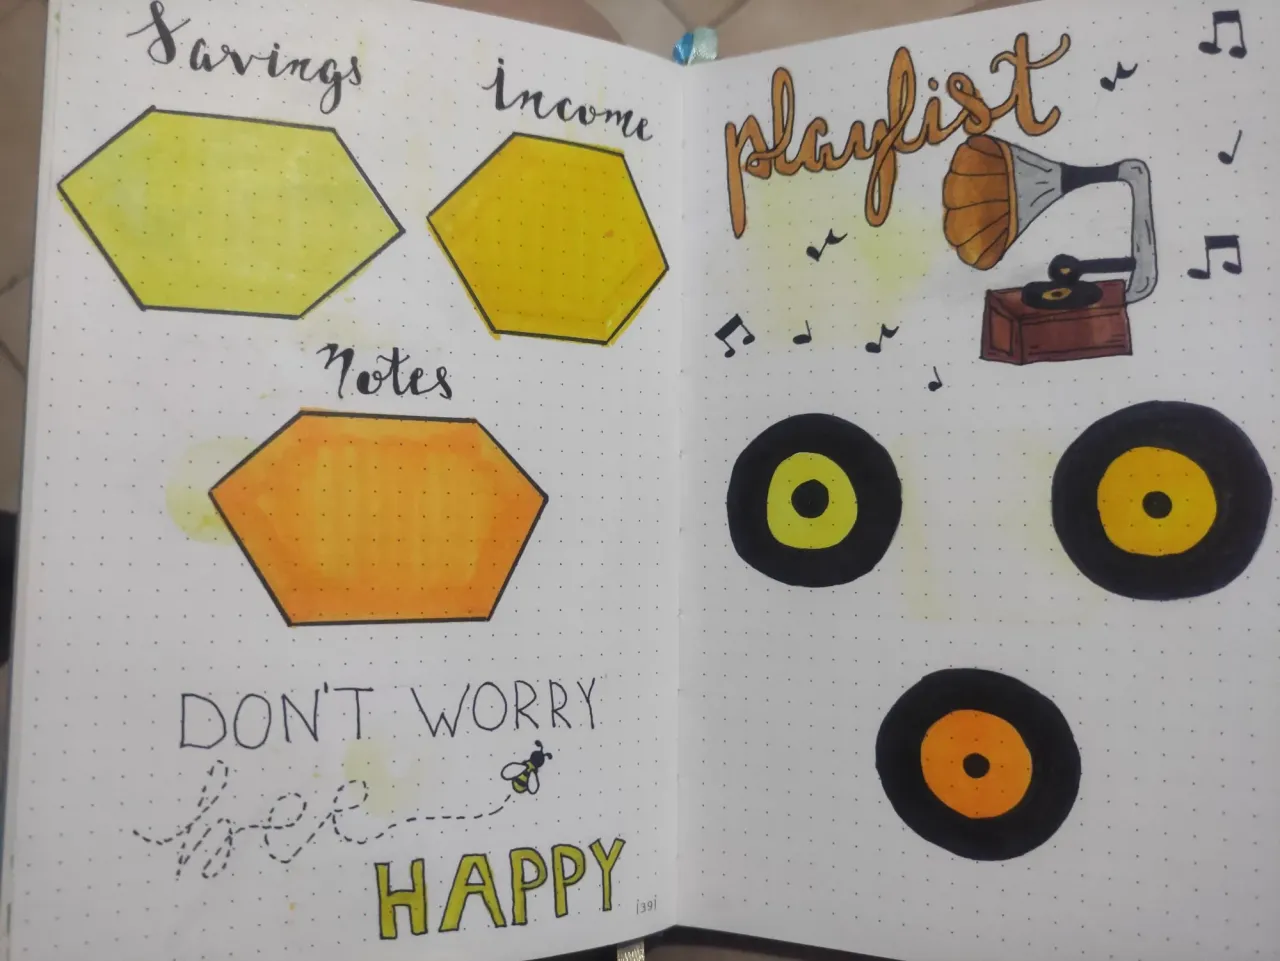 Savings
income
Notes
DON'T WORRY
HAPPY
|39|
playlist